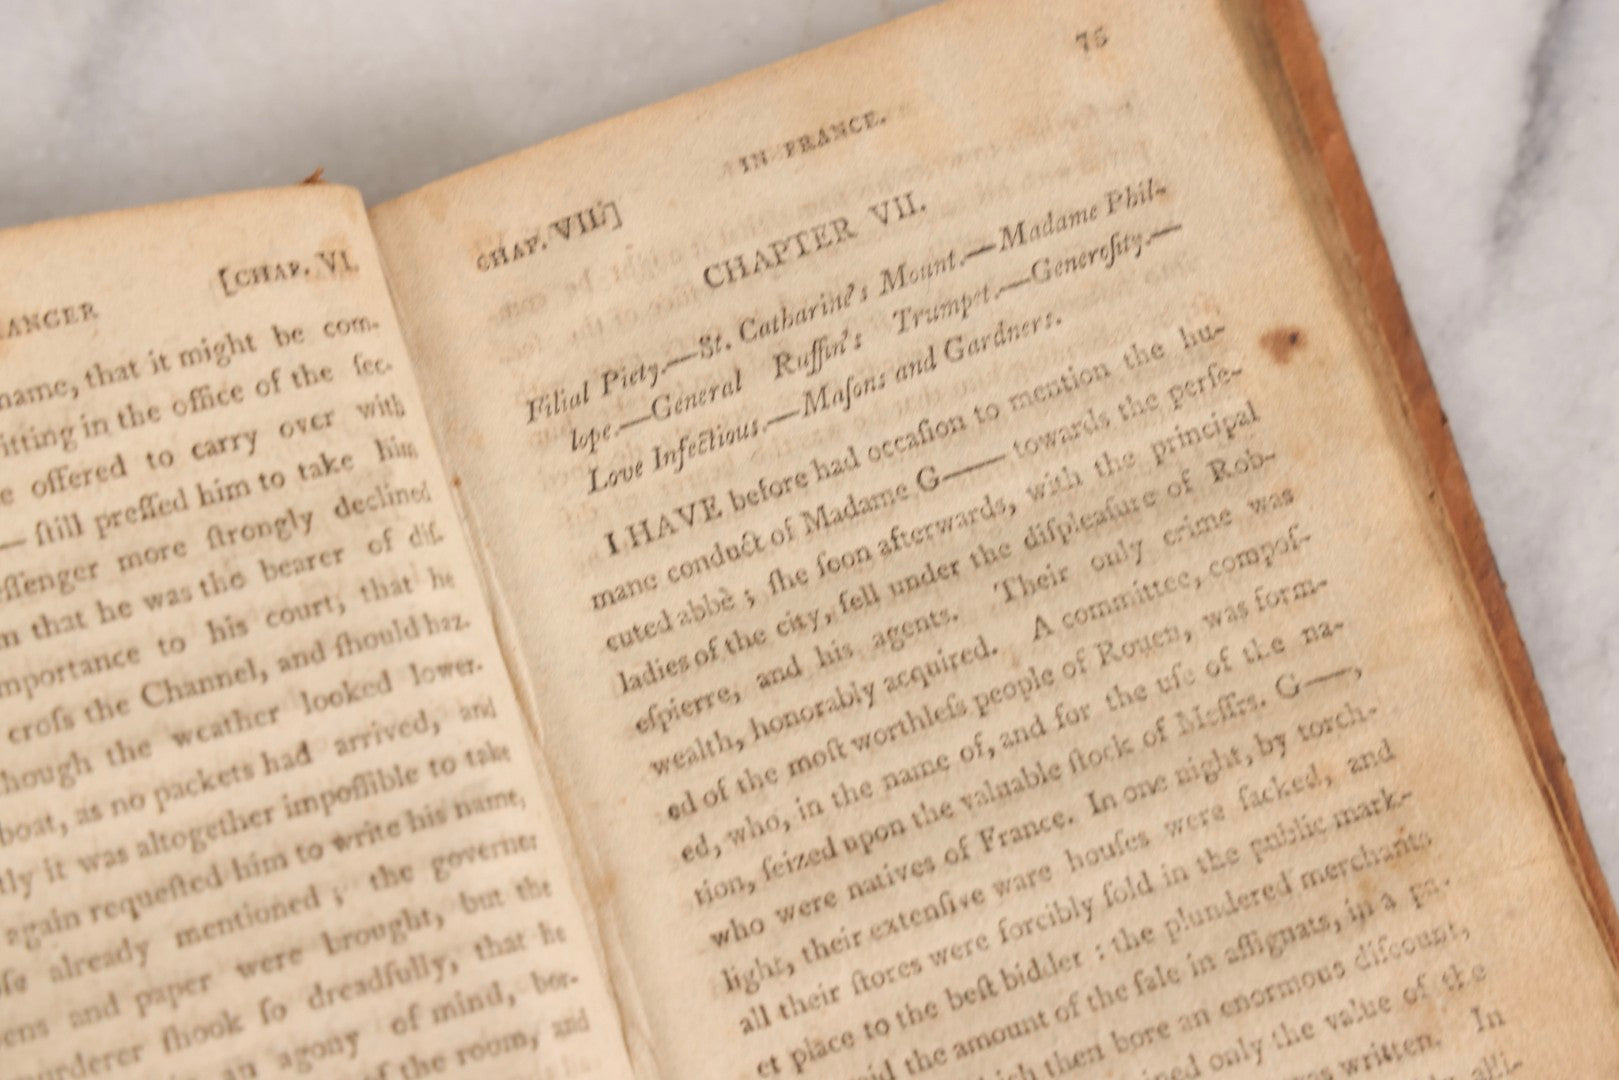 [CHAP. VI.
ANGER
name, that it might be com-
itting in the office of the ſec-
e offered to carry over with
— ſtill preſſed him to take him
eſſenger more ſtrongly declined
m that he was the bearer of diſ-
mportance to his court; that he
croſs the Channel, and ſhould haz-
hough the weather looked lower-
boat, as no packets had arrived, and
tly it was altogether impoſſible to take
again requeſted him to write his name,
oſe already mentioned; the governer
ens and paper were brought, but the
urderer ſhook ſo dreadfully, that he
an agony of mind, bor-
of the room, and
75
CHAP. VII.] IN FRANCE.
CHAPTER VII.
Filial Piety.—St. Catharine's Mount.—Madame Phil-
lope.—General Ruffin's Trumpet.—Generoſity.—
Love Infectious.—Maſons and Gardners.
I HAVE before had occaſion to mention the hu-
mane conduct of Madame G—— towards the perſe-
cuted abbè; ſhe ſoon afterwards, with the principal
ladies of the city, fell under the diſpleaſure of Rob-
eſpierre, and his agents. Their only crime was
wealth, honorably acquired. A committee, compoſ-
ed of the moſt worthleſs people of Rouen, was form-
ed, who, in the name of, and for the uſe of the na-
tion, ſeized upon the valuable ſtock of Meſſrs. G——,
who were natives of France. In one night, by torch-
light, their extenſive ware houſes were ſacked, and
all their ſtores were forcibly ſold in the public mark-
et place to the beſt bidder: the plundered merchants
the amount of the ſale in aſſignats, in a pa-
then bore an enormous diſcount,
only the value of the
was written. In